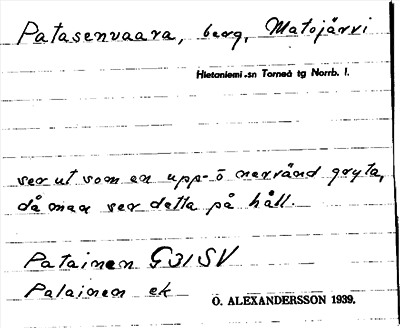 Patasenvaara, berg, Matojärvi
Hietaniemi sn Torneå tg Norrb. l.
ser ut som en upp- o nervänd gryta,
då man ser detta på håll.
Patainen G31 SV
Palainen ek
O. ALEXANDERSSON 1939.